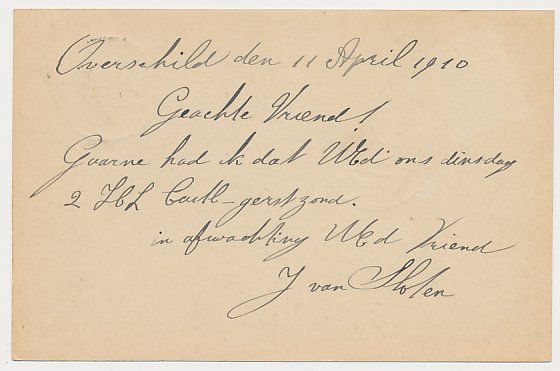 Overschild den 11 April 1910
Geachte Vriend!
Gaarne had ik dat UEd ons dinsdag
2 HL gerst zond.
in afwachting UEd Vriend
J van